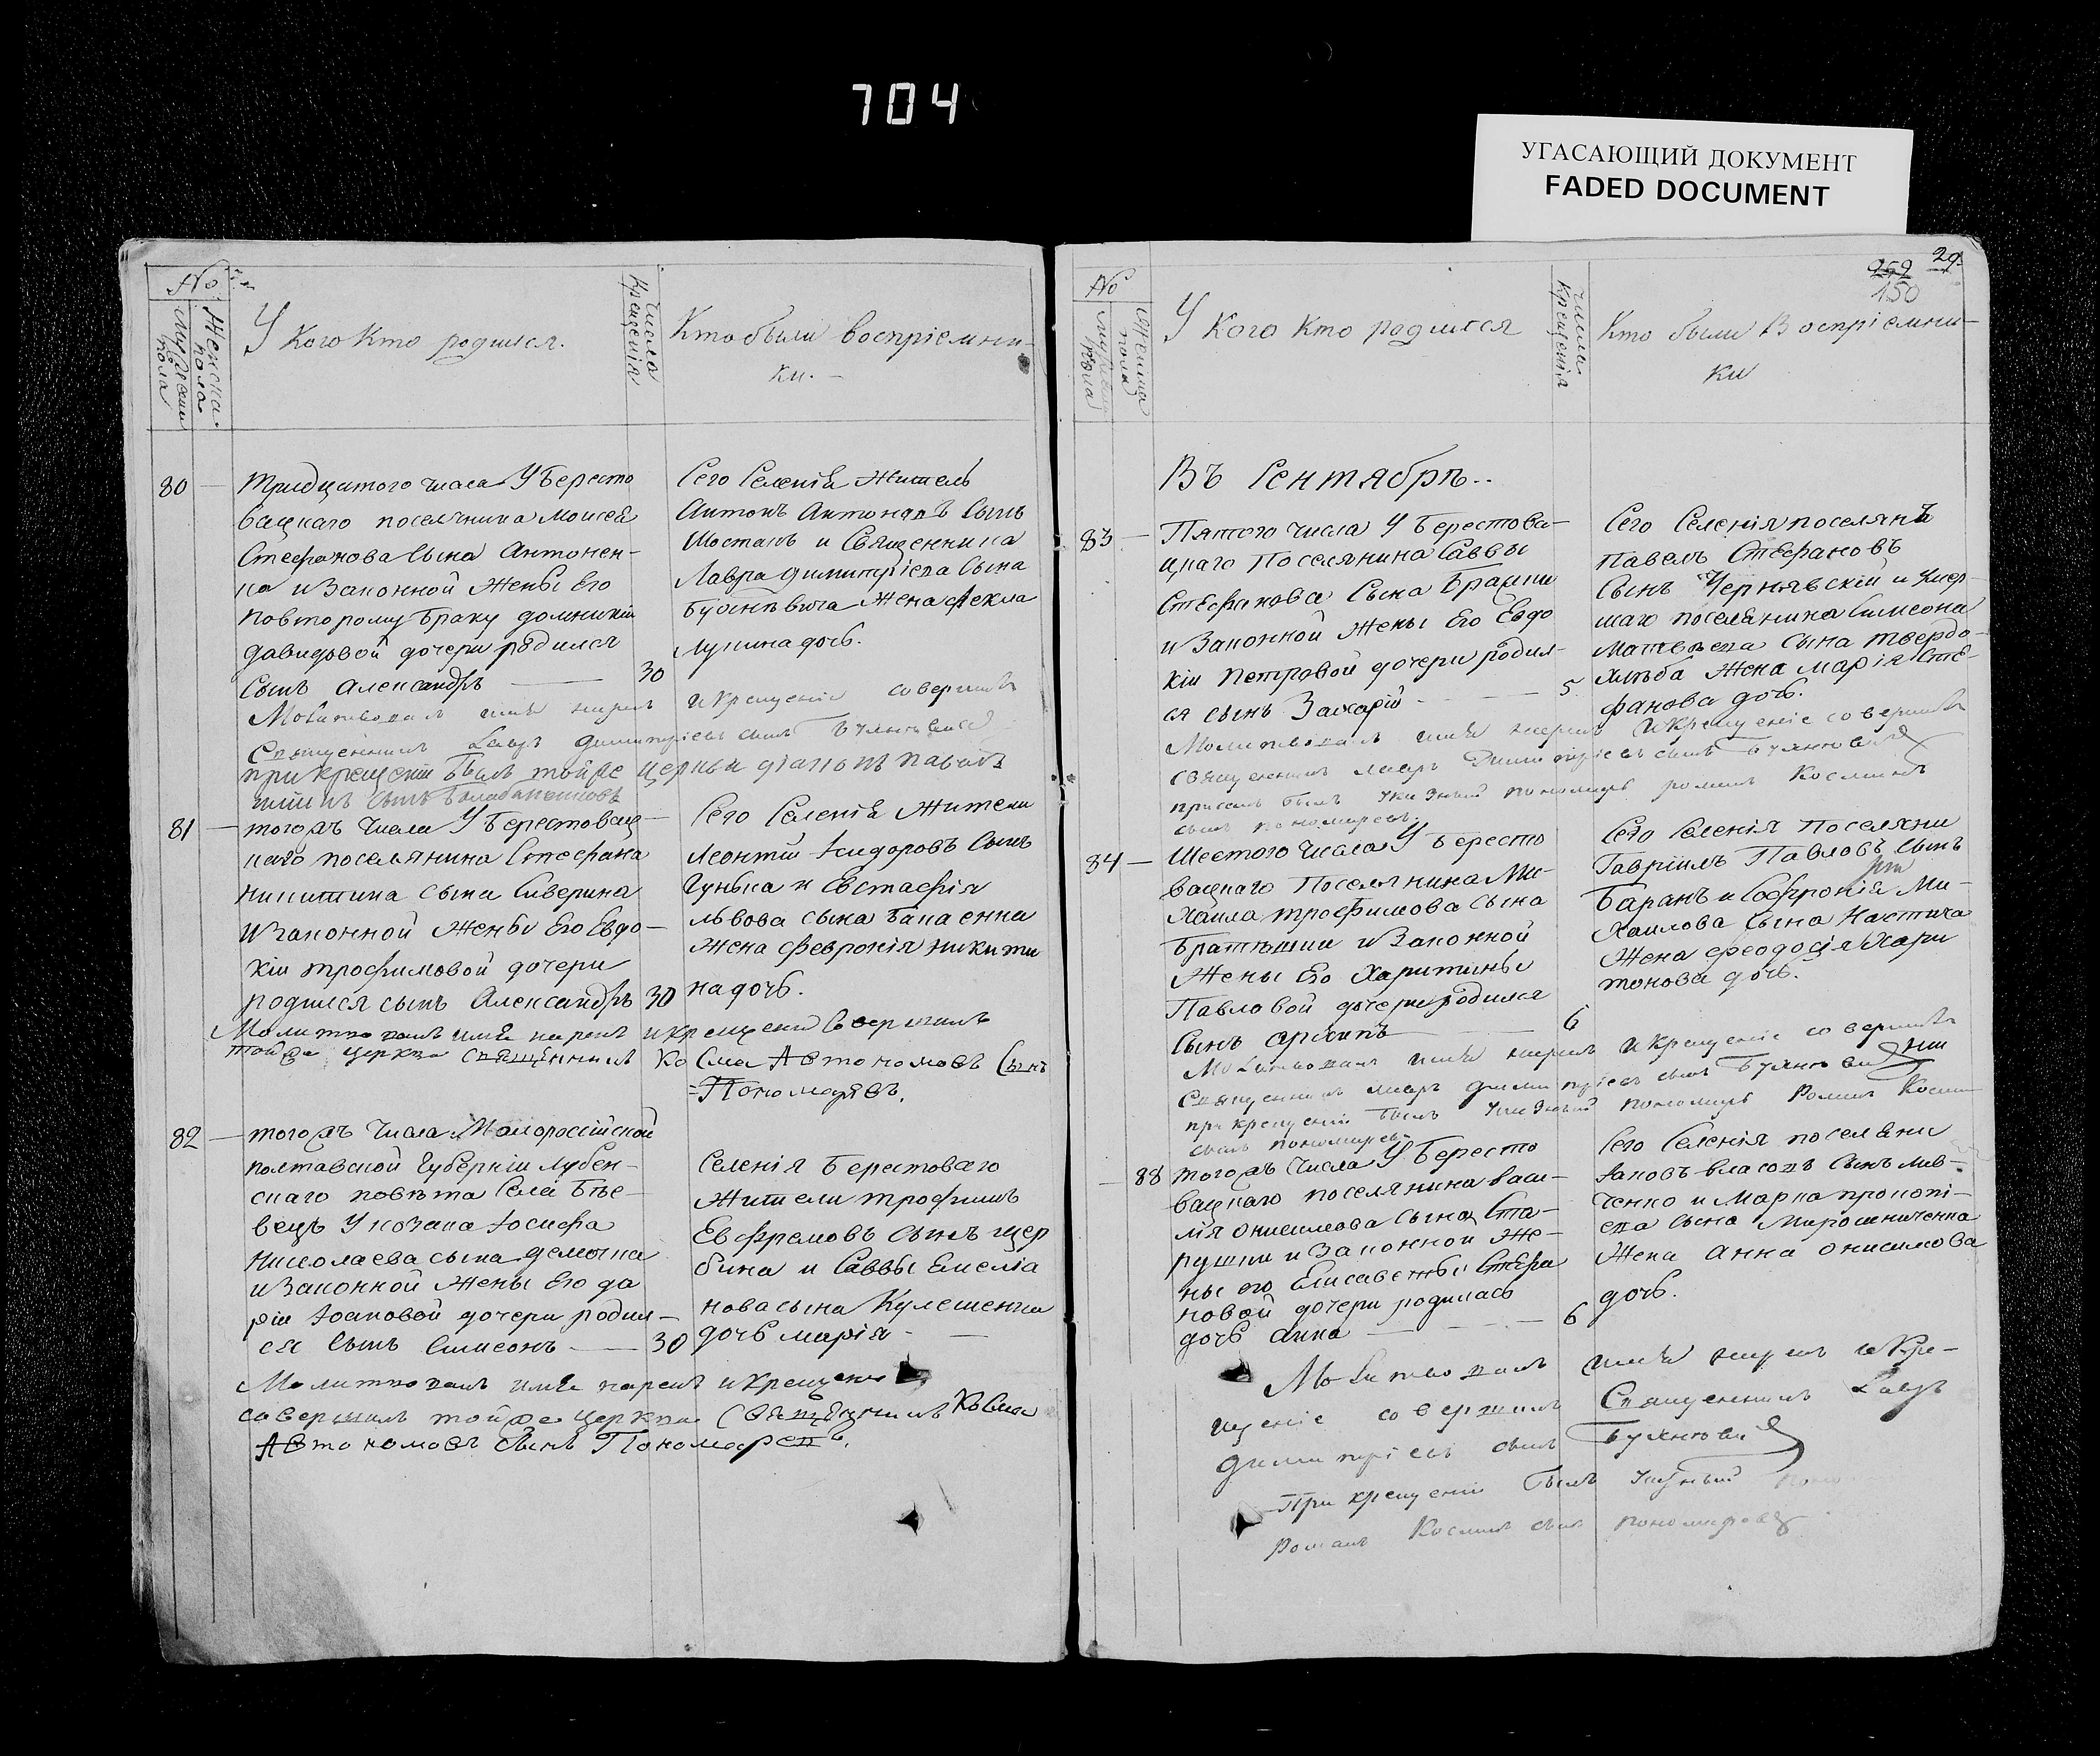 704
УГАСАЮЩИЙ ДОКУМЕНТ
FADED DOCUMENT
№
Мужеска пола
Женска пола
У кого кто родился.
Числа крещенія
Кто были воспріемни-
ки. –
80
тридцатого числа У Бересто
вацкаго поселянина Моисея
Стефанова сына Антонен-
ка и Законной Жены Его
повторому браку домникіи
давидовой дочери родился
сынъ Александръ — 30
Сего Селенія Житель
Антонъ Антоновъ сынъ
Шостакъ и Священника
Лавра димитріева сына
Жена Фекла
лукина дочь.
Молитвовалъ имя нарекъ и крещеніе совершилъ
Священникъ Лавръ димитріевъ сынъ
при крещеніи былъ тойже церкви діаконъ Павелъ
сынъ
81
тогожъ Числа У Берестовац-
каго поселянина Стефана
никитина сына Сиверина
и Законной Жены Его Евдо-
кіи трофимовой дочери
родился сынъ Александръ 30
Сего Селенія Жители
Леонтій Исидоровъ сынъ
Гунька и Евстафія
львова сына Бакаенка
Жена Февронія никити
на дочь.
Молитвовалъ имя нарекъ и крещеніе Совершилъ
тойже церкви священникъ Косма Автономовъ Сынъ
=Пономаревъ.
82
тогожъ Числа Малороссійской
полтавской Губерніи Лубен-
скаго повѣта Села Бѣе-
вецъ У козака Іосифа
Николаева сына демочка
и Законной Жены Его да
ріи Іоановой дочери родил-
ся сынъ Симеонъ — 30
Селенія Берестоваго
Жители трофимъ
Ефремовъ сынъ щер
бина и Саввы Емеліа
нова сына Кулешенка
дочь марія – —
Молитвовалъ имя нарекъ и крещеніе
совершилъ тойже церкви Священникъ Косма
Автономовъ Сынъ Пономаревъ.
29.
150
№
Мужеска пола
Женска пола
У кого кто родился
Числа крещенія
Кто были Воспріемни-
ки
Въ Сентябрѣ..
83
Пятого числа У Берестова-
цкаго Поселянина Саввы
Стефанова Сына
и Законной Жены Его Евдо
кіи петровой дочери родил-
ся сынъ Захарій — 5.
Сего Селенія поселянъ
павелъ Стефановъ
сынъ Чернявскій и умер-
шаго поселянина Симеона
матвѣева сына твердо-
хлѣба Жена марія Сте-
фанова дочь.
Молитвовалъ имя нарекъ и крещеніе совершилъ
священникъ лавръ Димитріевъ сынъ
при семъ былъ указный пономарь романъ Косминъ
сынъ пономаревъ.
84
Шестого Числа У Бересто
вацкаго Поселянина Ми-
хаила трофимова сына
и Законной
Жены Его Харитины
Павловой дочери родился
Сынъ архипъ — 6
Сего Селенія Поселяни
Гавріилъ Павловъ сынъ
Баранъ и Софронія Ми-
хаилова сына
Жена феодосія Хари
тонова дочь.
Молитвовалъ имя нарекъ и крещеніе совершилъ
Священникъ лавръ димитріевъ сынъ
при крещеніи былъ указный пономарь Романъ Косми
сынъ пономаревъ
88
тогожъ Числа У Бересто
вацкаго поселянина васи-
лія онисимова сына Ста-
рушки и Законной Же-
ны его Елисаветы Стефа
новой дочери родилась
дочь анна — 6
Сего Селенія поселяни
Іаковъ власовъ сынъ лев-
ченко и Марка прокопі-
ева сына Мирошниченка
Жена анна онисимова
дочь.
Молитвовалъ имя нарекъ и Кре-
щеніе совершилъ Священникъ Лавръ
димитріевъ сынъ
При крещеніи былъ указный поно
Романъ Косминъ сынъ пономаревъ